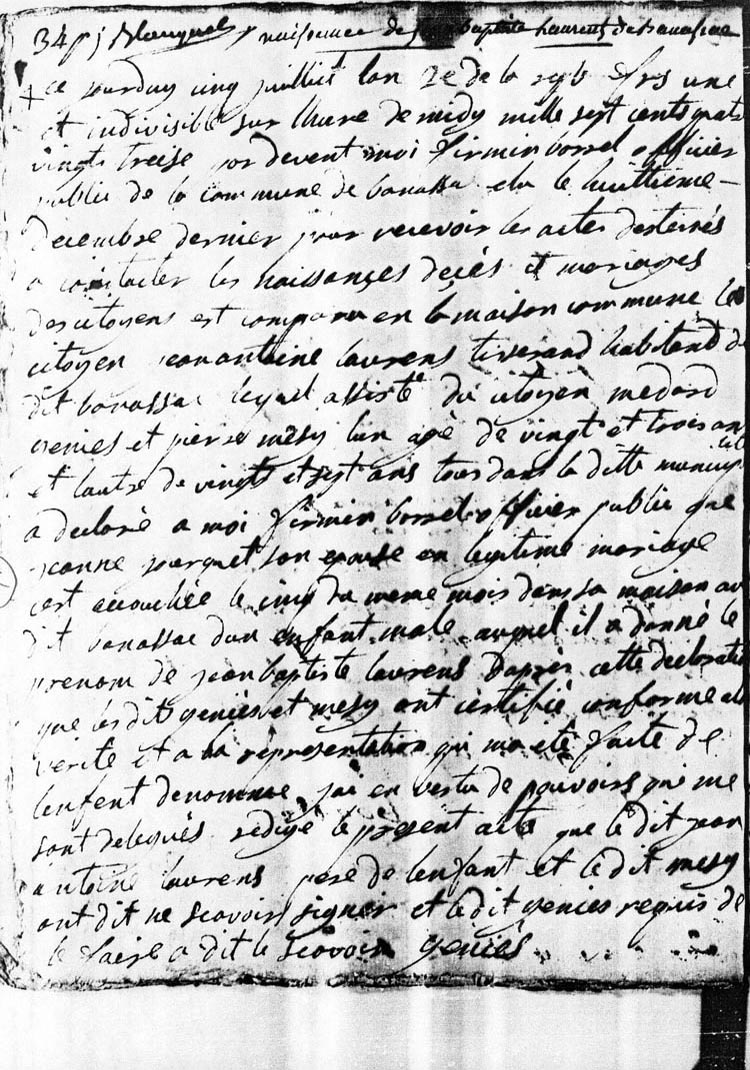 34 naissance de jean baptiste laurens de banassac
ce jourduy cinq juillet lan 2e de la rpb frse une
et indivisible sur lhure de midy mille sept cents quatre
vingts treise par devent moi firmin borrel officier
public de la commune de banassa elu le huittieme
decembre dernier pour recevoir les actes destinés
a constater les naissances decés et mariages
des citoyens est comparu en la maison commune le
citoyen jean antoine laurens tisserand habitend du
dit banassac lequel assisté du citoyen medard
genies et pierre mesy lun agé de vingt et trois ans
et lautre de vingt et sept ans tous dans la ditte municip
a declaré a moi firmin borrel officier public que
jeanne pourquet son epouse en legitime mariage
est accouchée le cinq du meme mois dans sa maison au
dit banassac dun enfant male auquel il a donné le
prenom de jean baptiste laurens daprés cette declaration
que les dit genies et mesy ont certifié conforme a la
verite et a la représentation qui ma eté faite de
lenfent denommé jai en vertu de pouvoirs qui me
sont delegués redigé le présent acte que le dit jean
antoine laurens pere de lenfant et le dit mesy
ont dit ne scavoir signer et le dit genies requis de
le faire a dit le scavoir genies